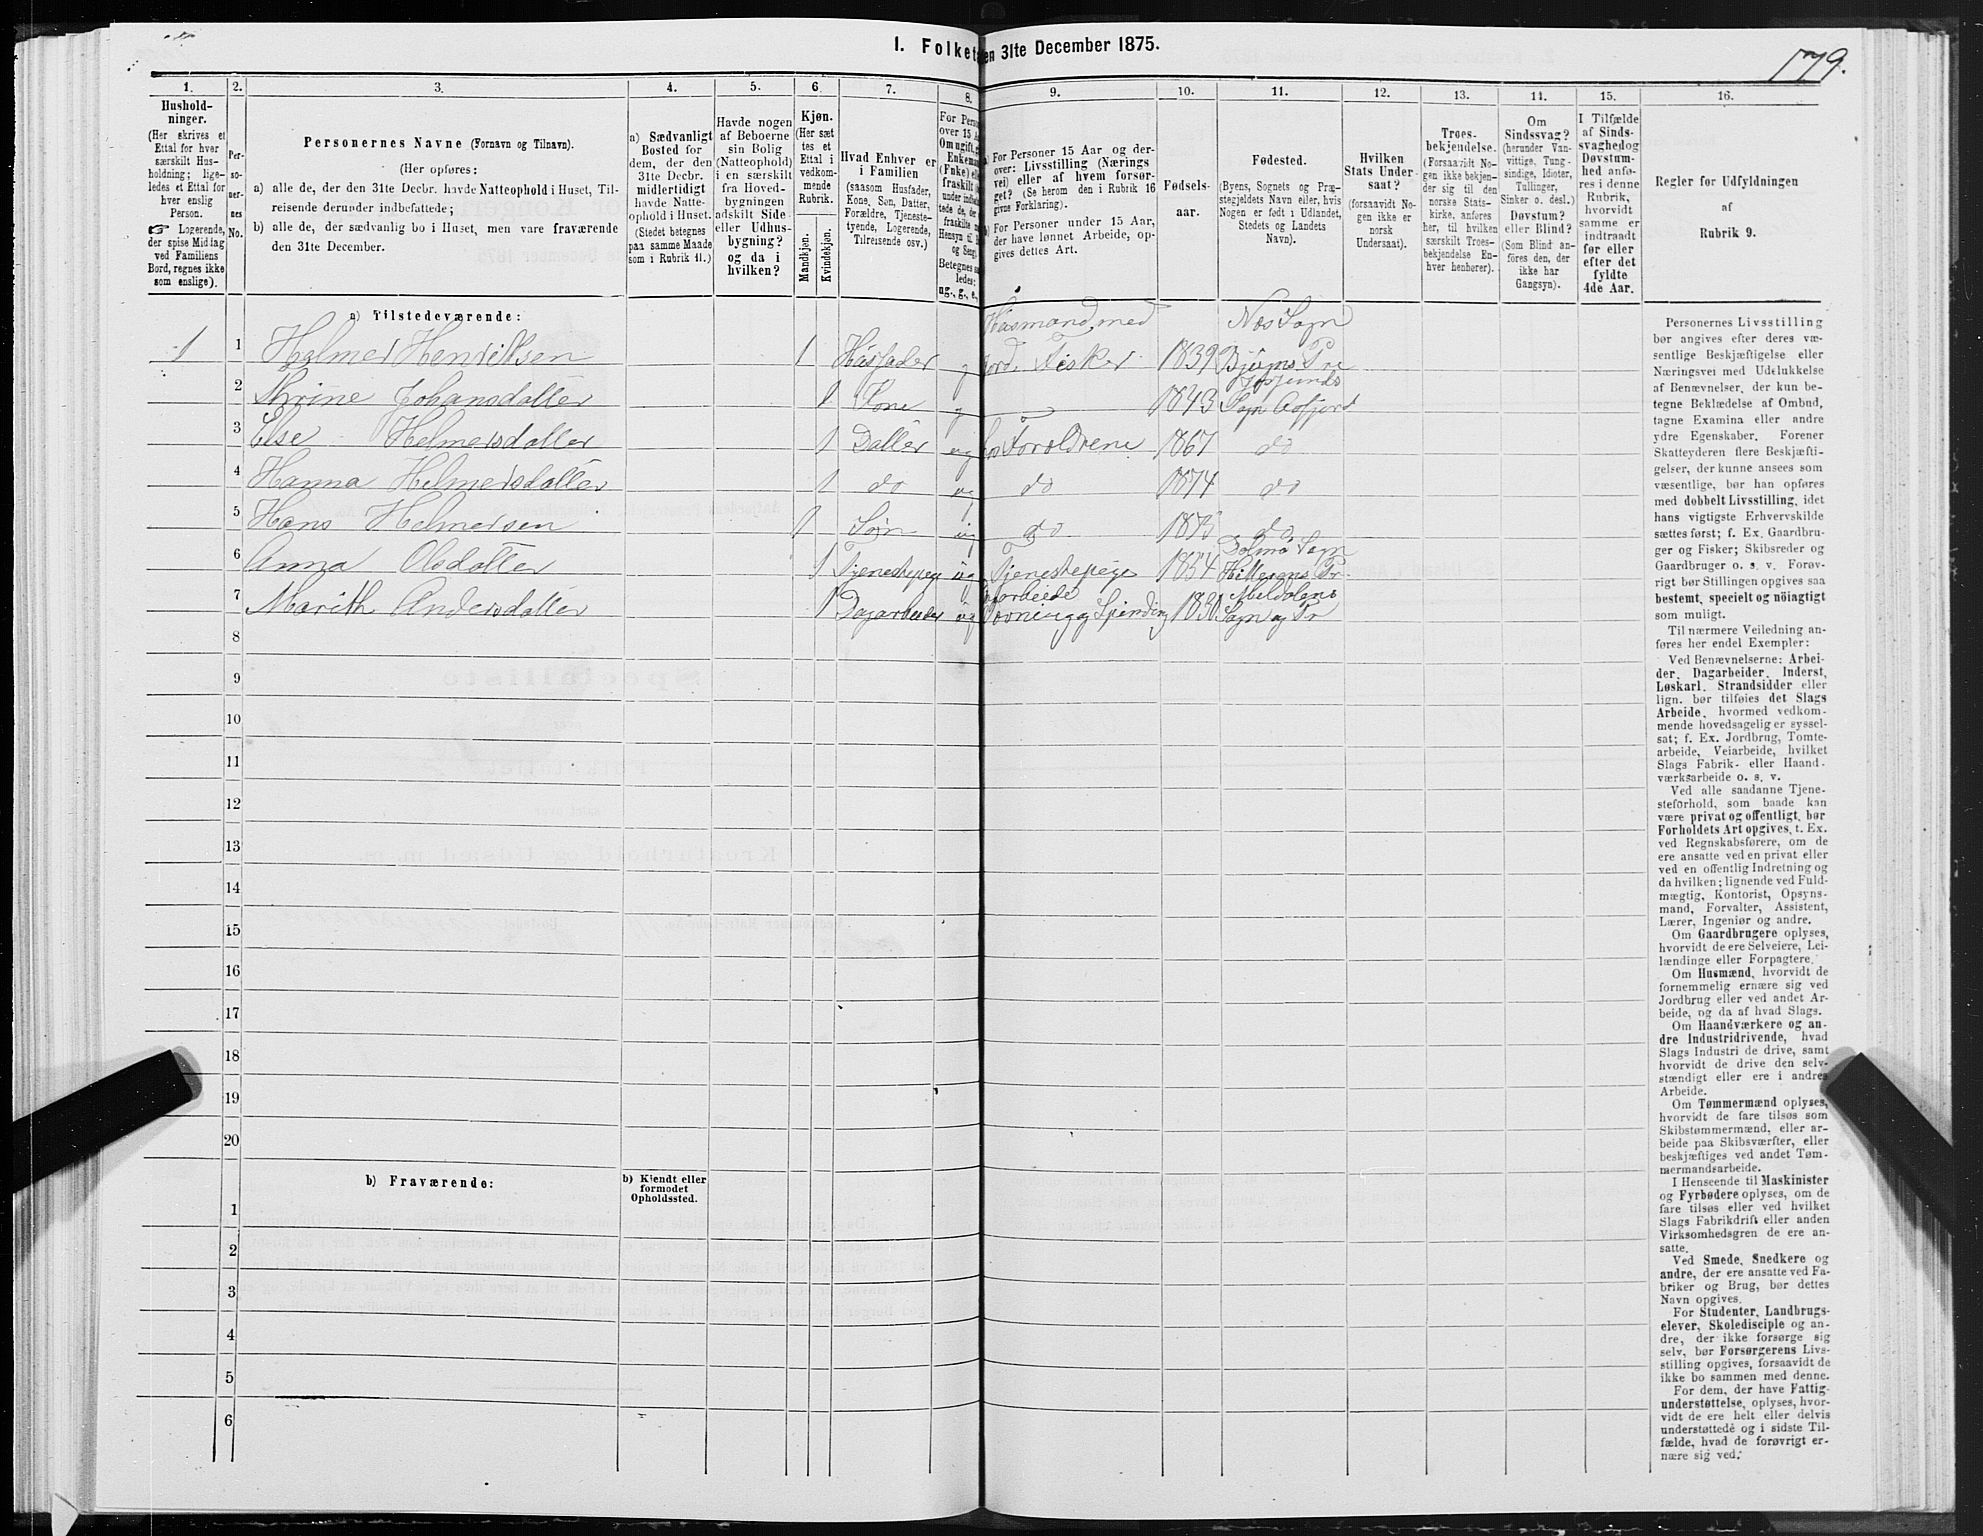 1. Folket
en 31te December 1875.
179.
1.
2.
3.
4.
5.
6
7.
8.
9.
10.
11.
12.
13.
14.
15.
16.
Hushold-
ninger.
(Her skrives et
Ettal for hver
særskilt Hus-
holdning; lige-
ledes et Ettal for
hver enslig
Person.
☞ Logerende,
der spise Middag
ved Familiens
Bord, regnes ikke
som enslige).
Per-
so-
ner-
nes
No.
Personernes Navne (Fornavn og Tilnavn).
(Her opføres:
a) alle de, der den 31te Decbr. havde Natteophold i Huset, Til-
reisende derunder indbefattede;
b) alle de, der sædvanlig bo i Huset, men vare fraværende
den 31te December.
a) Sædvanligt
Bosted for
dem, der den
31te Decbr.
midlertidigt
havde Natte-
ophold i Huset.
(Stedet betegnes
paa samme Maade
som i Rubrik 11.)
Havde nogen
af Beboerne
sin Bolig
(Natteophold)
i en særskilt
fra Hoved-
bygningen
adskilt Side
eller Udhus-
bygning?
og da i
hvilken?
Kjøn.
(Her sæt
tes et
Ettal i
vedkom-
mende
Rubrik.
Mandkjøn.
Kvindekjøn.
Hvad Enhver er
i Familien
(saasom Husfader,
Kone, Søn, Datter,
Forældre, Tjeneste-
tyende, Logerende,
Tilreisende osv.)
For Perso
over 15 Aa
Om ugift, g
Enkeman
(Enke) elle
fraskilt (
under indbe
tede de, de
fraskilte
Hensyn til B
og Seng
Betegnes sa
ledes:
ug., g., e.,
a) For Personer 15 Aar og der-
over: Livsstilling (Nærings
vei) eller af hvem forsør-
get? (Se herom den i Rubrik 16
givne Forklaring).
b) For Personer under 15 Aar,
der have lønnet Arbeide, op-
gives dettes Art.
Fødsels-
aar.
Fødested.
(Byens, Sognets og Præ-
stegjeldets Navn eller, hvis
Nogen er født i Udlandet,
Stedets og Landets
Navn).
Hvilken
Stats Under-
saat?
(forsaavidt No-
gen ikke er
norsk
Undersaat).
Troes-
bekjendelse.
(Forsaavidt No-
gen ikke bekjen-
der sig til den
norske Stats-
kirke, anføres
her, til hvilken
særskilt Troes-
bekjendelse En-
hver henhører).
Om
Sindssvag?
(herunder Van-
vittige, Tung-
sindige, Idioter,
Tullinger,
Sinker o. desl.)
Døvstum?
eller Blind?
(Som Blind an-
føres den, der
ikke har
Gangsyn).
I Tilfælde
af Sinds-
svaghed og
Døvstum-
hed anfø-
res i denne
Rubrik,
hvorvidt
samme er
indtraadt
før eller
efter det
fyldte
4de Aar.
Regler før Udfyldningen
af
Rubrik 9.
a) Tilstedeværende:
Husmand, med
Næs Sogn
1
1
Helmer Henriksen
1
Husfader
g
Jord, Fisker
1839
Bjugns Pre
2
Thrine Johansdatter
1
Kone
g
1843
Jøssunds
Sogn Aafjord
3
Else Helmersdatter
1
Datter
ug
hos Forældrene
1867
do
4
Hanna Helmersdatter
1
do
ug
do
1874
do
5
Hans Helmersen
1
Søn
ug
do
1875
do
6
Anna Olsdatter
1
Tjenestepige
ug
Tjenestepige
1854
Dolmø Sogn
Hitterens Pr
7
Marith Andersdatter
1
Dagarbeider
ug
Dagarbeide
og Spinding
1830
Meldalens
Sogn og Pr
8
9
10
11
12
13
14
15
16
17
18
19
20
b) Fraværende:
b) Kjendt eller
formodet
Opholdssted.
1
2
3
4
5
6
Personernes Livsstilling
bør angives efter deres væ-
sentlige Beskjæftigelse eller
Næringsvei med Udelukkelse
af Benævnelser, der kun be-
tegne Beklædelse af Ombud,
tagne Examina eller andre
ydre Egenskaber. Forener
Skatteyderen flere Beskjæfti-
gelser, der kunne ansees som
væsentlige, bør han opføres
med dobbelt Livsstilling, idet
hans vigtigste Erhvervskilde
sættes først; f. Ex. Gaardbru-
ger og Fisker; Skibsreder og
Gaardbruger o. s. v. Forøv-
rigt bør Stillingen opgives saa
bestemt, specielt og nöiagtigt
som muligt.
Til nærmere Veiledning an-
føres her endel Exempler:
Ved Benævnelserne: Arbei-
der, Dagarbeider, Inderst,
Løskarl, Strandsidder eller
lign. bør tilføies det Slags
Arbeide, hvormed vedkom-
mende hovedsagelig er syssel-
sat; f. Ex. Jordbrug, Tomte-
arbeide, Veiarbeide, hvilket
Slags Fabrik- eller Haand-
værksarbeide o. s. v.
Ved alle saadanne Tjene-
steforhold, som baade kan
være privat og offentligt, bør
Forholdets Art opgives, t. Ex.
ved Regnskabsførere, om de
ere ansatte ved en privat eller
ved en offentlig Indretning og
da hvilken; lignende ved Fuld-
mægtig, Kontorist, Opsyns-
mand, Forvalter, Assistent,
Lærer, Ingeniør og andre.
Om Gaardbrugere oplyses,
hvorvidt de ere Selveiere, Lei-
lændinge eller Forpagtere.
Om Husmænd, hvorvidt de
fornemmelig ernære sig ved
Jordbrug eller ved andet Ar-
beide, og da af hvad Slags.
Om Haandværkere og an-
dre Industridrivende, hvad
Slags Industri de drive, samt
hvorvidt de drive den selv-
stændigt eller ere i andres
Arbeide.
Om Tømmermænd oplyses,
hvorvidt de fare tilsøs som
Skibstømmermænd, eller ar-
beide paa Skibsværfter, eller
beskjæftiges ved andet Tøm-
mermandsarbeide.
I Henseende til Maskinister
og Fyrbødere oplyses, om de
fare tilsøs eller ved hvilket
Slags Fabrikdrift eller anden
Virksomhedsgren de ere an-
satte.
Ved Smede, Snedkere og
andre, der ere ansatte ved Fa-
briker og Brug, bør dettes
Navn opgives.
For Studenter, Landbrugs-
elever, Skoledisciple og an-
dre, der ikke forsørge sig
selv, bør Forsørgerens Livs-
stilling opgives, forsaavidt de
ikke bo sammen med denne.
For dem, der have Fattig-
understøttelse, oplyses, hvor-
vidt de ere helt eller delvis
understøttede og i sidste Til-
fælde, hvad de forøvrigt er-
nære sig ved.